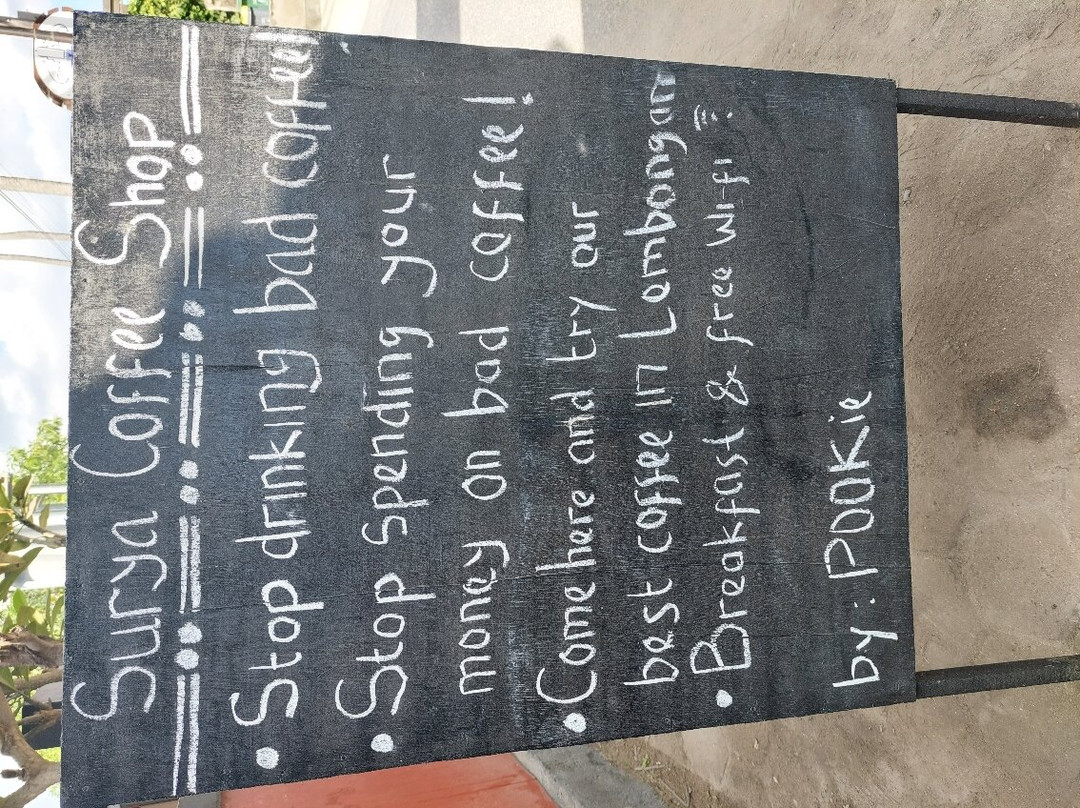 Surya Coffee Shop
• Stop drinking bad coffee!
• Stop spending your
money on bad coffee!
• Come here and try our
best coffee in Lembongan
• Breakfast & free wi-fi
by: POOKie